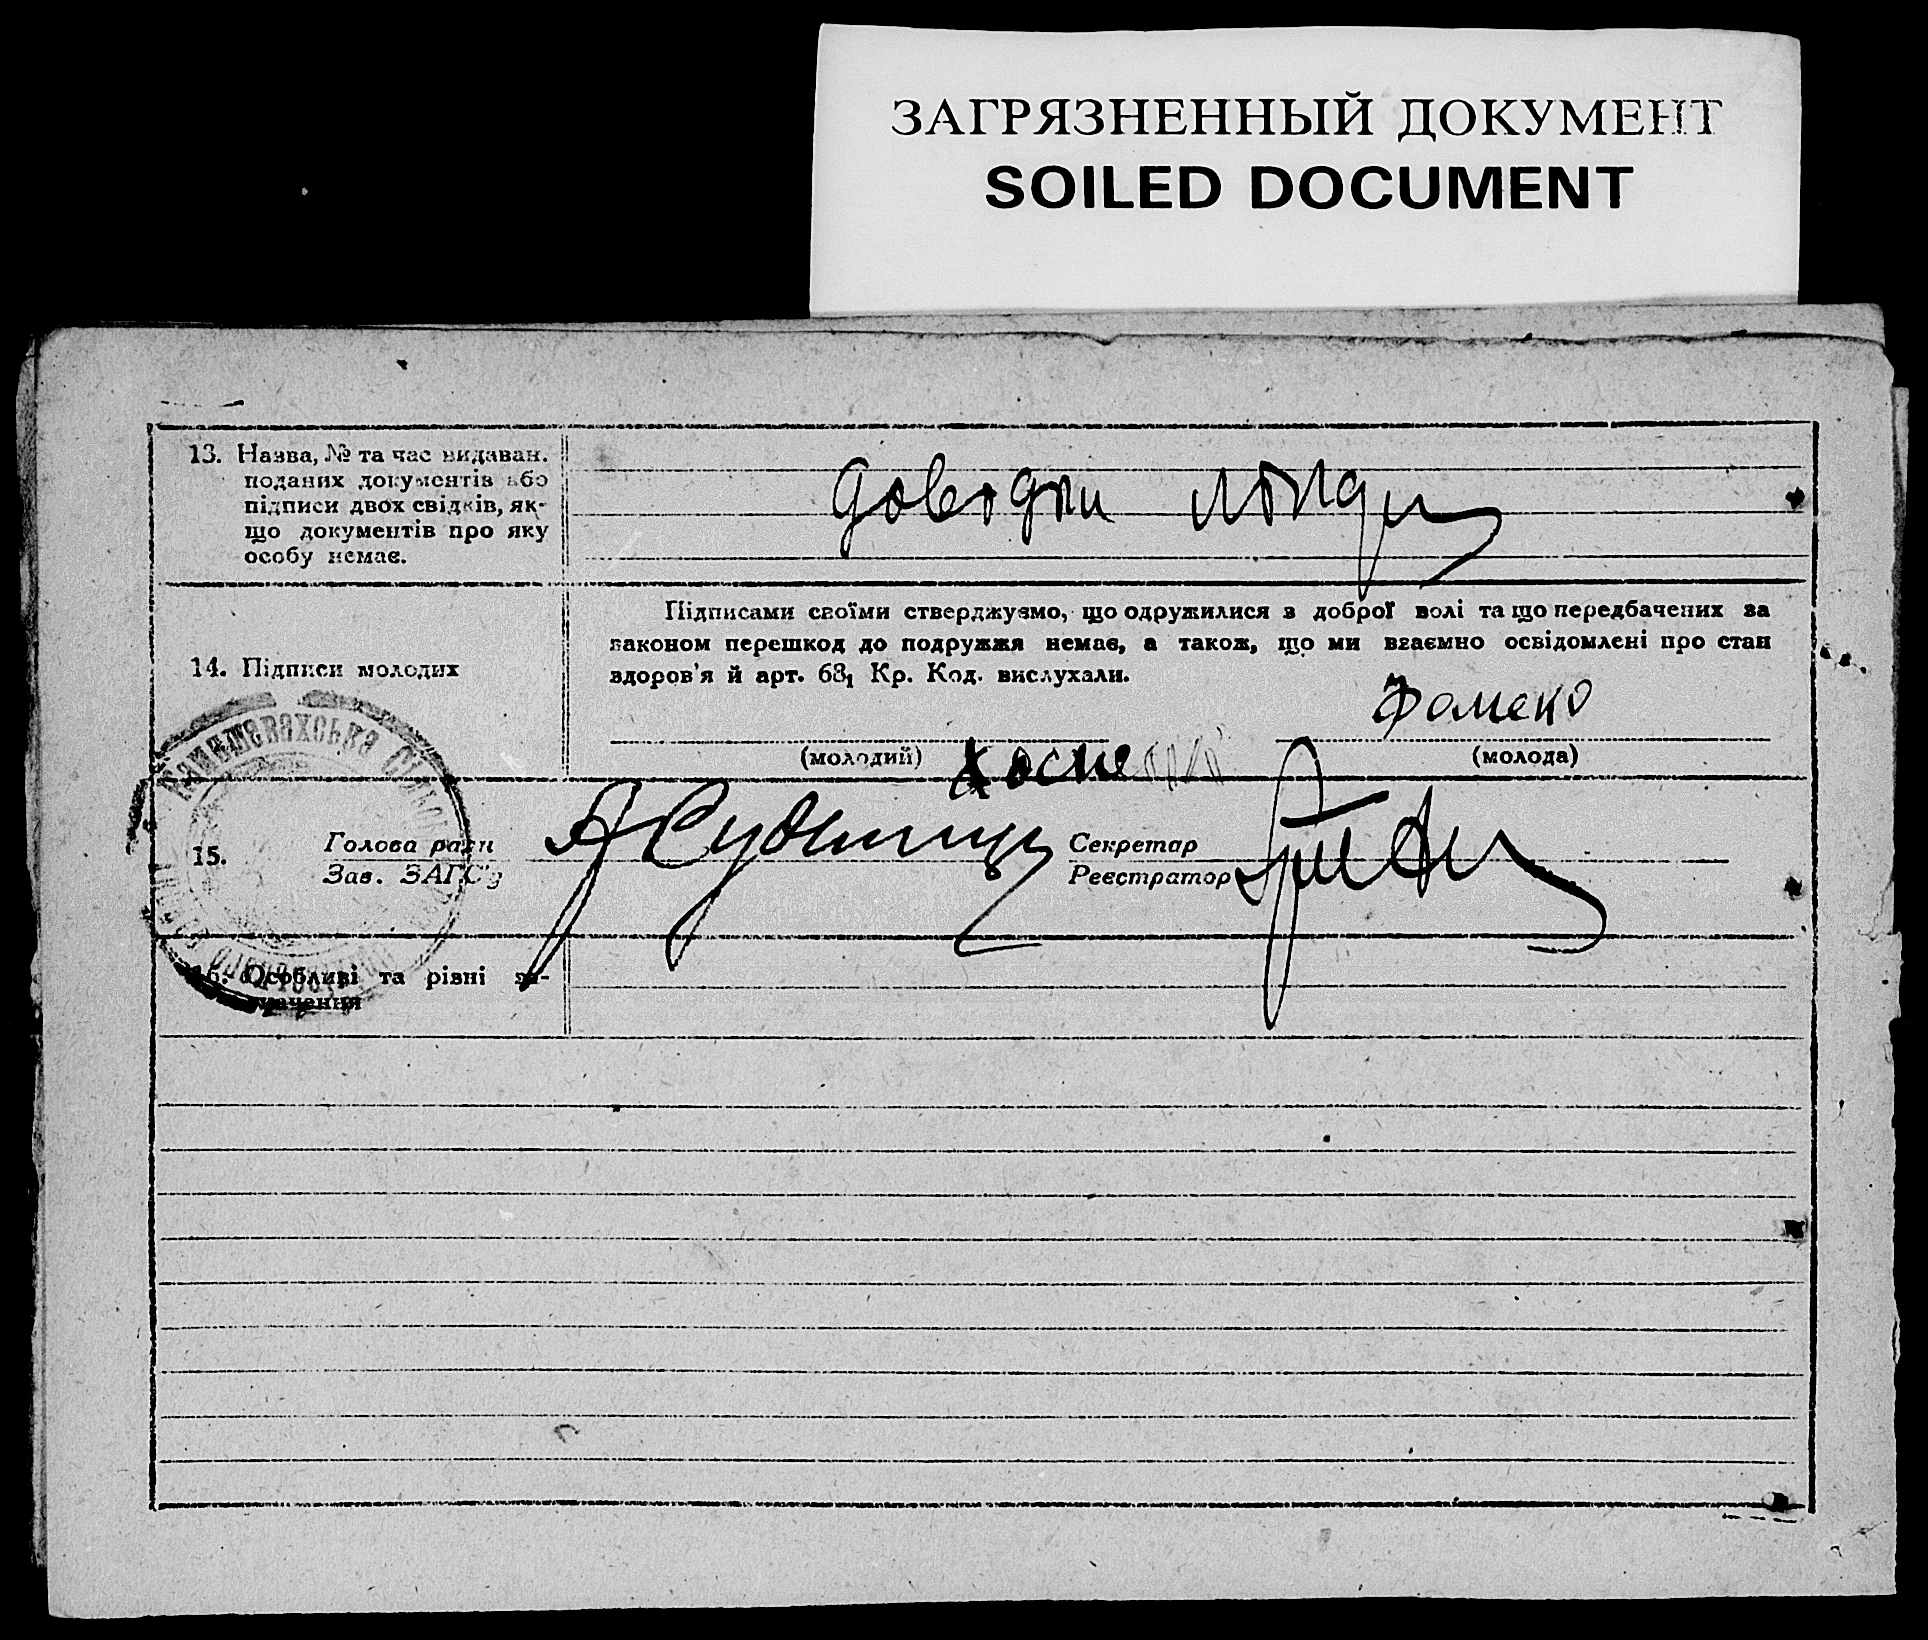 ЗАГРЯЗНЕННЫЙ ДОКУМЕНТ
SOILED DOCUMENT
13. Назва, № та час видаван.
поданих документів або
підписи двох свідків, як-
що документів про яку
особу немає.
14. Підписи молодих
Підписами своїми стверджуємо, що одружилися з доброї волі та що передбачених за
законом перешкод до подружжя немає, а також, що ми взаємно освідомлені про стан
здоров'я й арт. 68₁ Кр. Код. вислухали.
Фоменко
(молодий)
(молода)
15.
Голова ради
Зав. ЗАГС'у
Секретар
Реєстратор
16. Особливі та рівні за-
значення